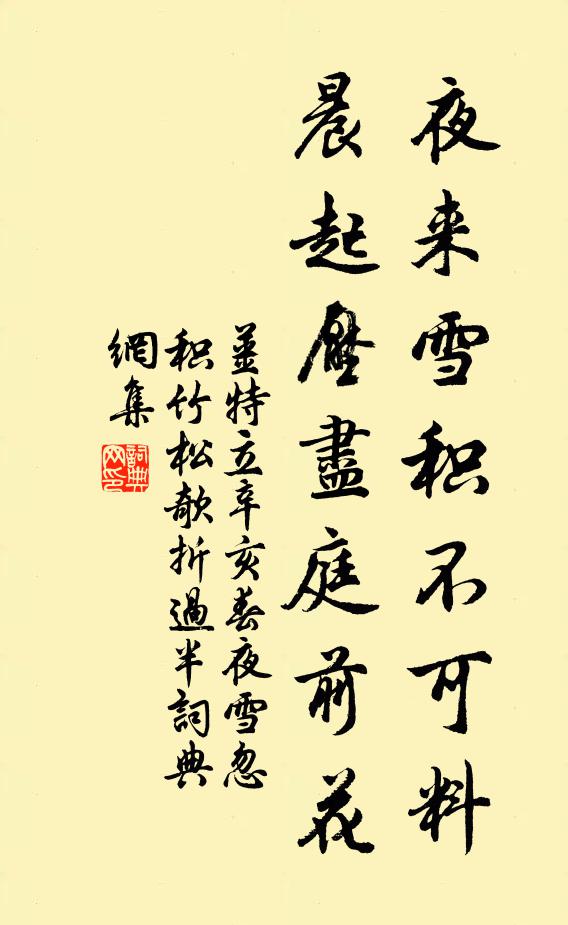 夜来雪积不可料
晨起壓盡庭前花
姜特立辛亥春夜雪忽
积竹松欹折過半詞典
網集
詞典
网印